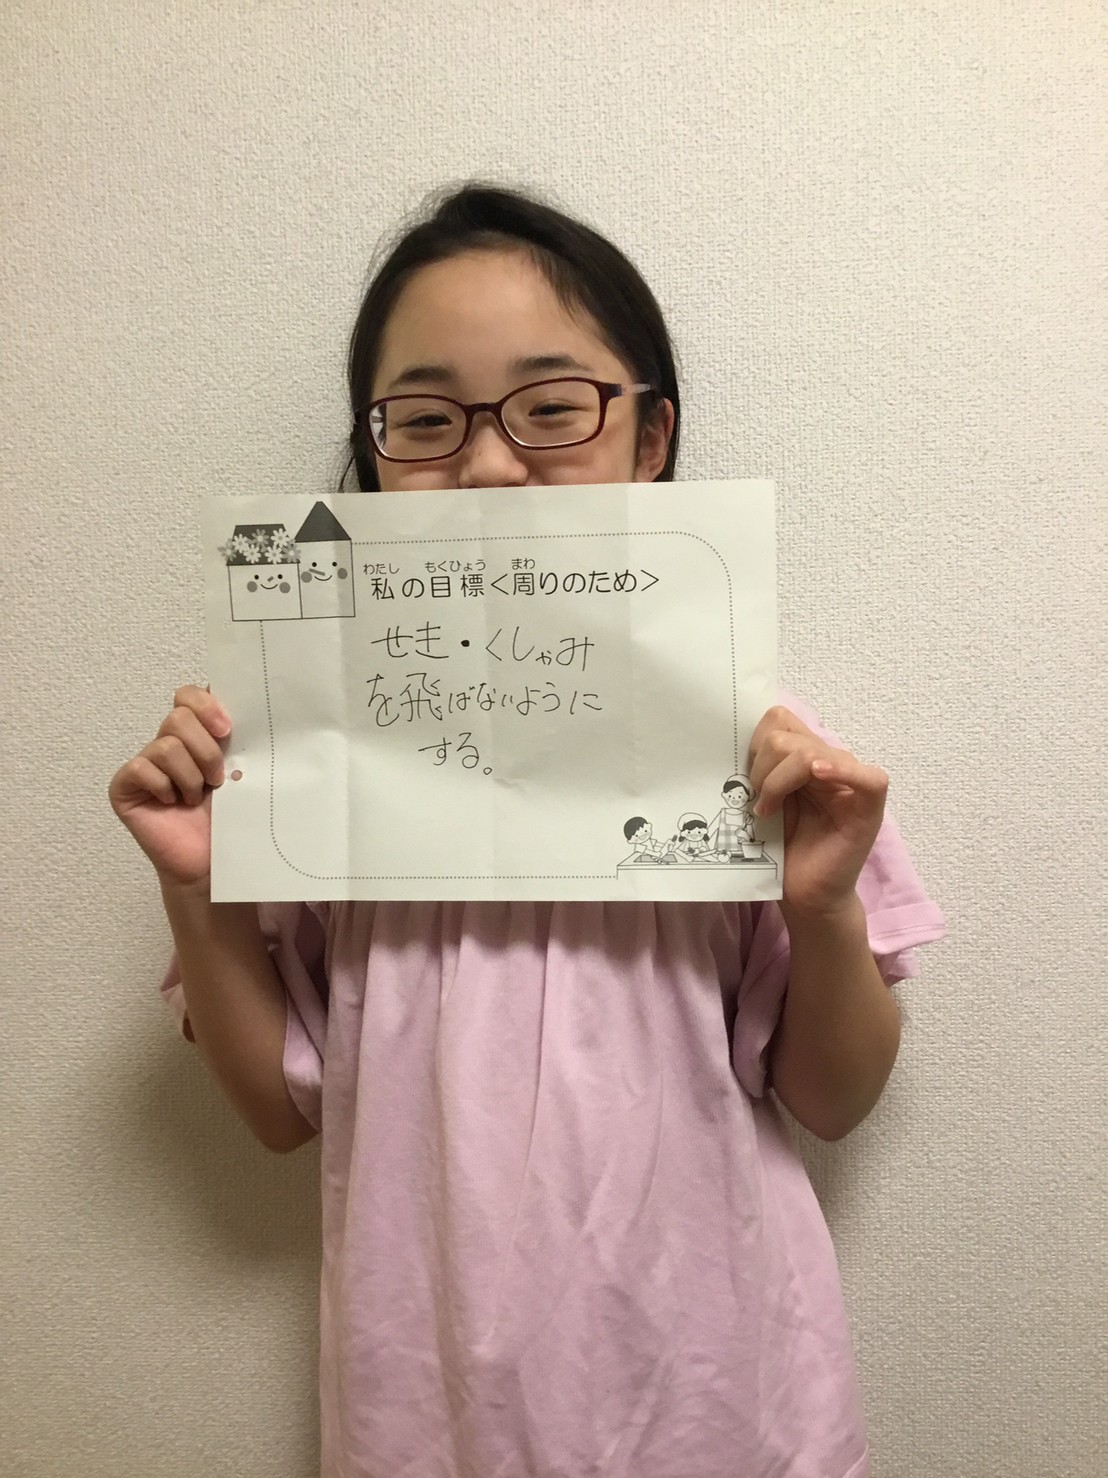 わたし もくひょう まわ
私の目標<周りのため>
せき・くしゃみ
を飛ばないように
する。